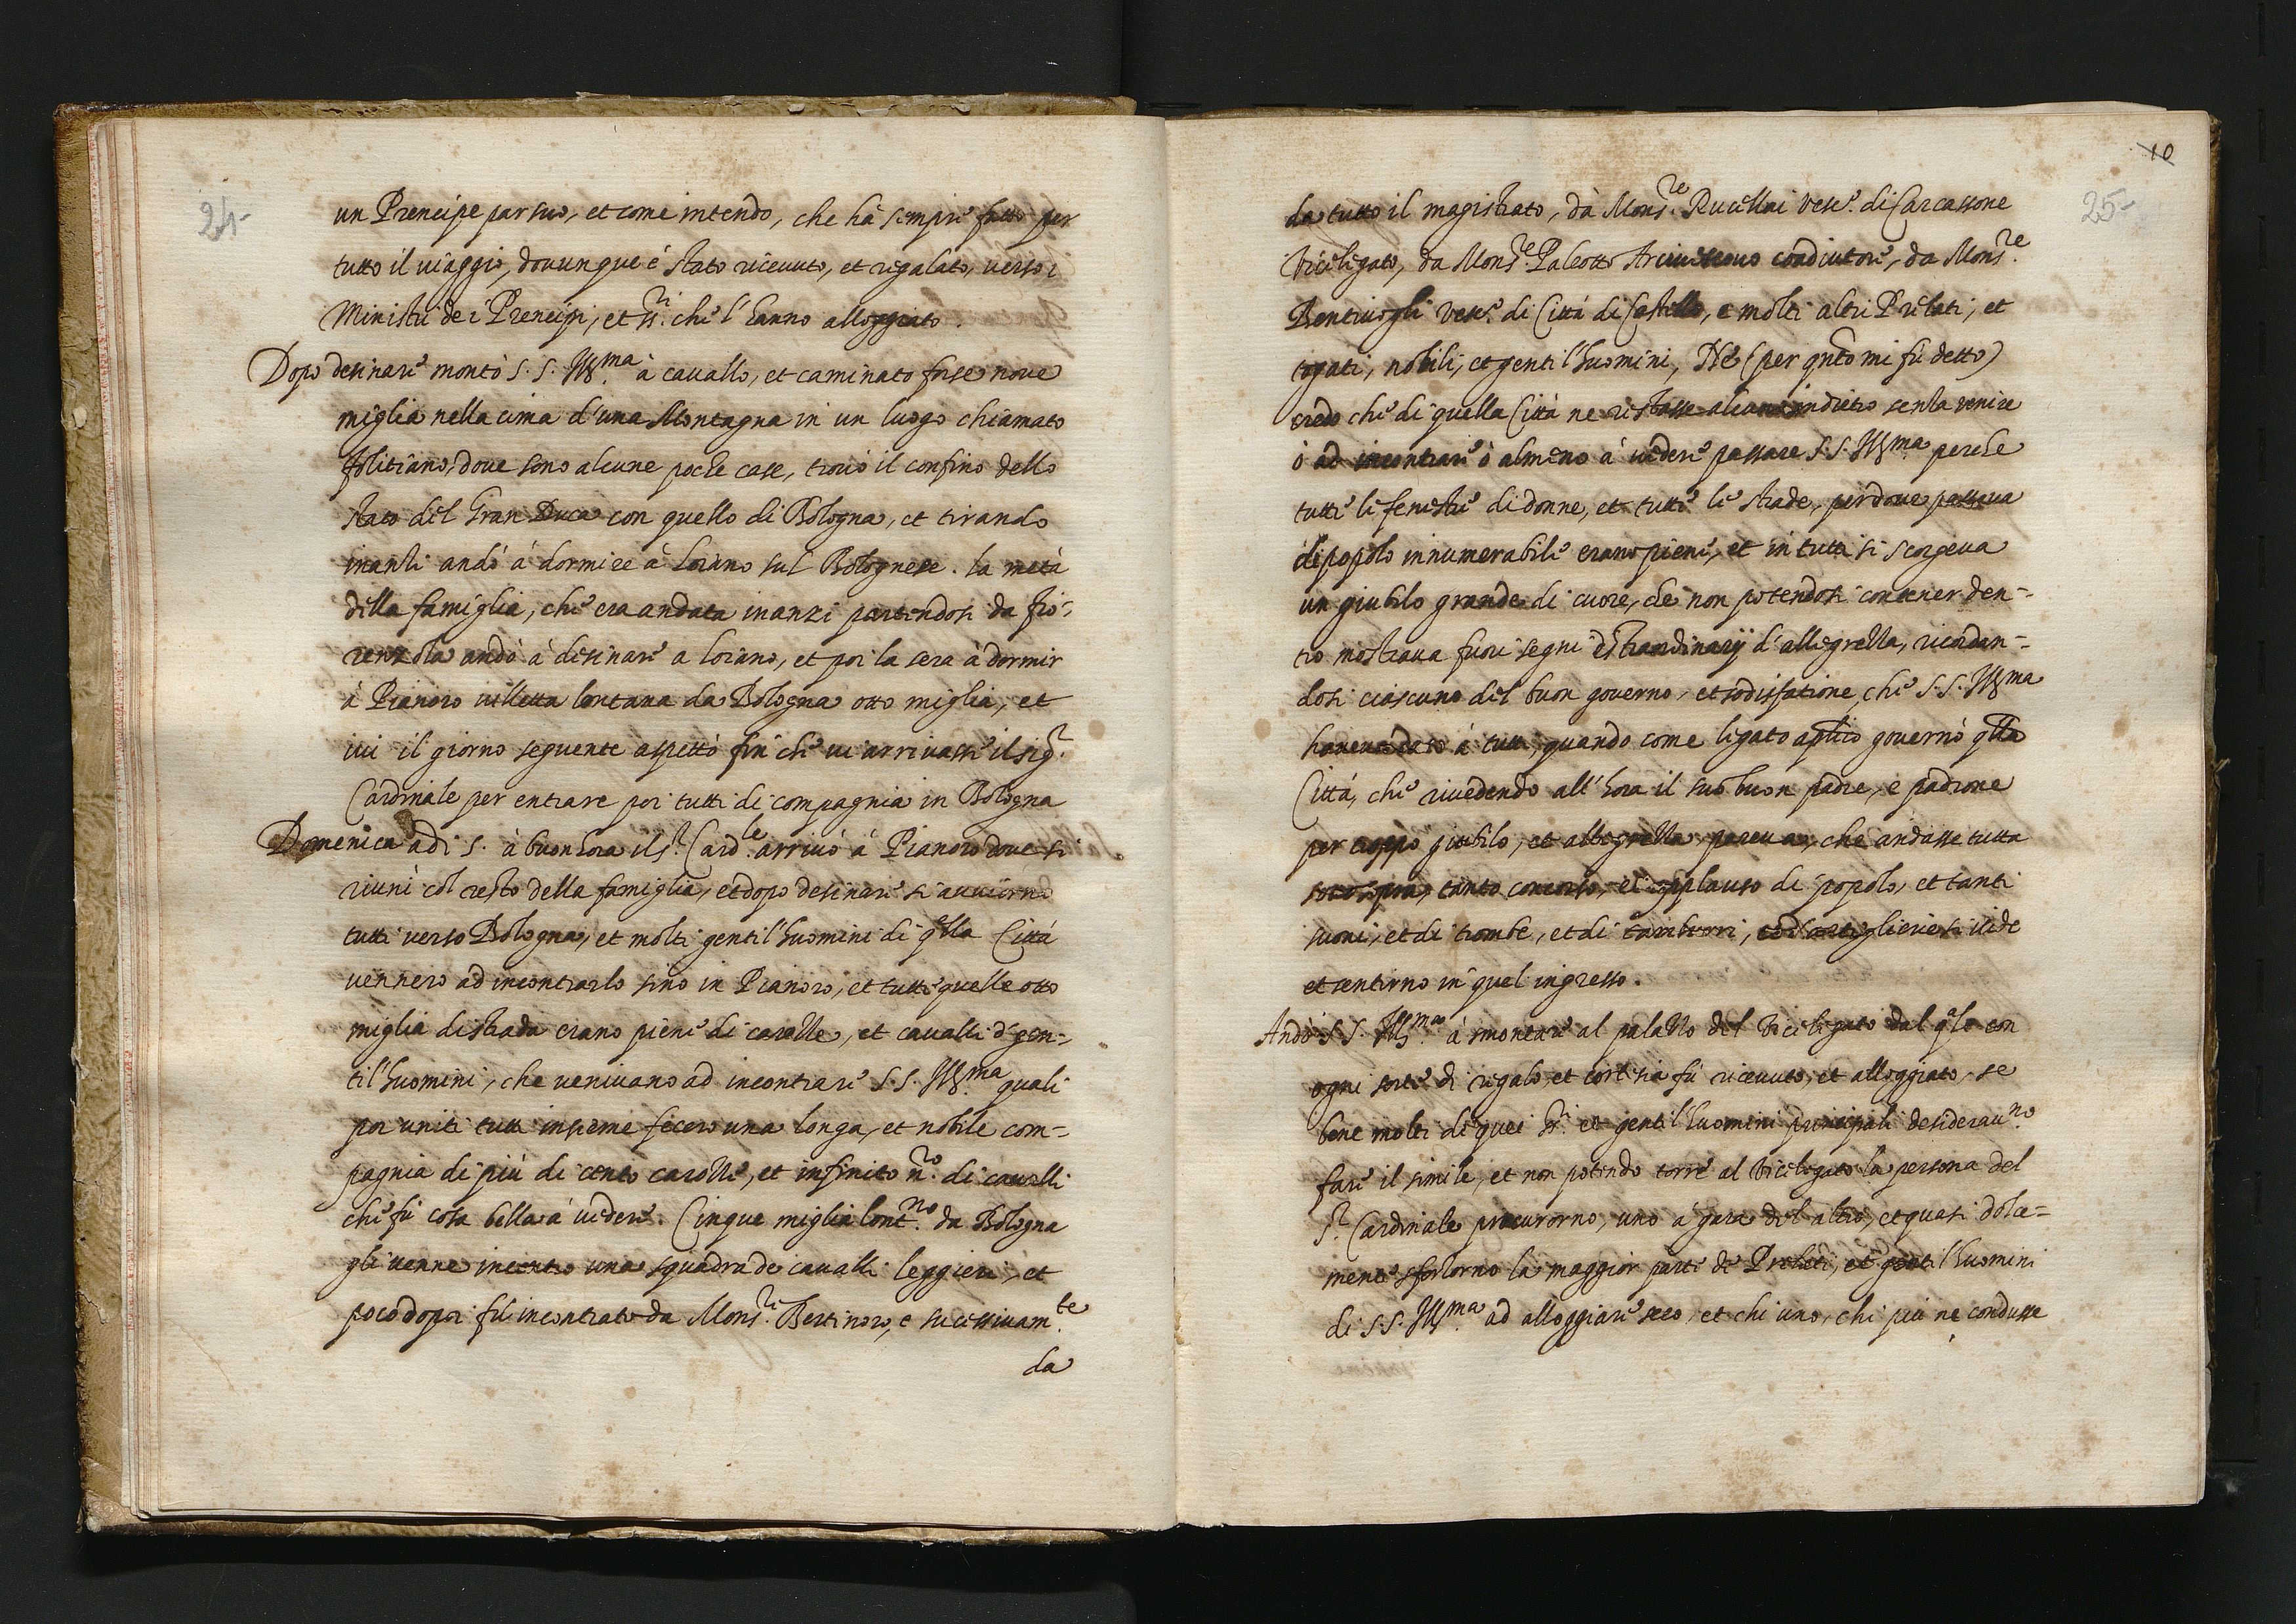 24
un Prencipe par suo, et come intendo, che hà sempre fatto per
tutto il uiaggio, douunque è stato riceuuto, et regalato, uerso i
Ministri de i Prencipi, et ss.ri che l'hanno alloggiato.
Dopo desinare montò S. S. Ill.ma à cauallo, et caminato forse noue
miglia nella cima d'una Montagna in un luogo chiamato
folitiano, doue sono alcune poche case, trouò il confino dello
stato del Gran Duca con quello di Bologna, et tirando
inanti andò à dormire à Loiano sul Bolognese. la metà
della famiglia, che era andata inanzi partendosi da fio-
renzola andò à desinare a Loiano, et poi la sera à dormir
à Pianoro uilletta lontana da Bologna otto miglia, et
iui il giorno seguente aspettò fin che ui arriuasse il Sig.r
Cardinale per entrare poi tutti di compagnia in Bologna
Domenica adi 5. à buon hora il S.r Card.le arriuò à Pianoro doue si
riunì col resto della famiglia, et dopo desinare si auuiorno
tutti uerso Bologna, et molti gentil'huomini di q.lla Città
uennero ad incontrarlo sino in Pianoro, et tutte quelle otto
miglia di strada erano piene di carozze, et caualli d'gen-
til'huomini, che ueniuano ad incontrare S. S. Ill.ma quali
poi uniti tutti insieme fecero una longa, et nobile com-
pagnia di più di cento carozze, et infinito n.ro di caualli
che fù cosa bella à uedere. Cinque miglia lont.no da Bologna
gli uenne incontro una squadra de caualli leggieri, et
poco dopoi fù incontrato da Mons.r Bertinoro, e successiuam.te
da
10
25
da tutto il magistrato, dà Mons.re Rucellai Vesc.o di Carcassone
Vicelegato, da Mons.re Paleotto Arciuescouo coadiutore, da Mons.re
Bentiuogli Vesc.o di Città di Castello, e molti altri Prelati, et
togati, nobili, et gentil'huomini, Nè (per qnto mi fù detto)
credo che di quella Città ne restasse alcuno indietro senza uenire
ò ad incontrare ò almeno à uedere passare S. S. Ill.ma perche
tutte le fenestre di donne, et tutte le strade, per doue passaua
di popolo innumerabile erano piene, et in tutti si scorgeua
un giubilo grande di cuore, che non potendosi contener den-
tro mostraua fuori segni estraordinarij d'allegrezza, ricordan-
dosi ciascuno del buon gouerno, et sodisfatione, che S. S. Ill.ma
haueua dato à tutti, quando come legato aplico gouernò qlla
Città, che riuedendo all'hora il suo buon padre, e padrone
per troppo giubilo, et allegrezza pareua, che andasse tutta
sotto sopra, tanto concorso, et applauso di popolo, et tanti
suoni, et di trombe, et di tamburri, et d'artiglierie si uide
et sentirno in quel ingresso.
Andò S. S. Ill.ma à smontare al palazzo del Vicelegato dal q.le con
ogni sorte di regalo, et cortesia fù riceuuto, et alloggiato, se
bene molti di quei ss.ri et gentil'huomini principali desiderau.no
fare il simile, et non potendo torre al Vicelegato la persona del
S.r Cardinale procurorno, uno à gara del'altro, et quasi dolce-
mente sforzorno la maggior parte de Prelati, et gentil'huomini
di S. S. Ill.ma ad alloggiare seco, et chi uno, chi più ne condusse